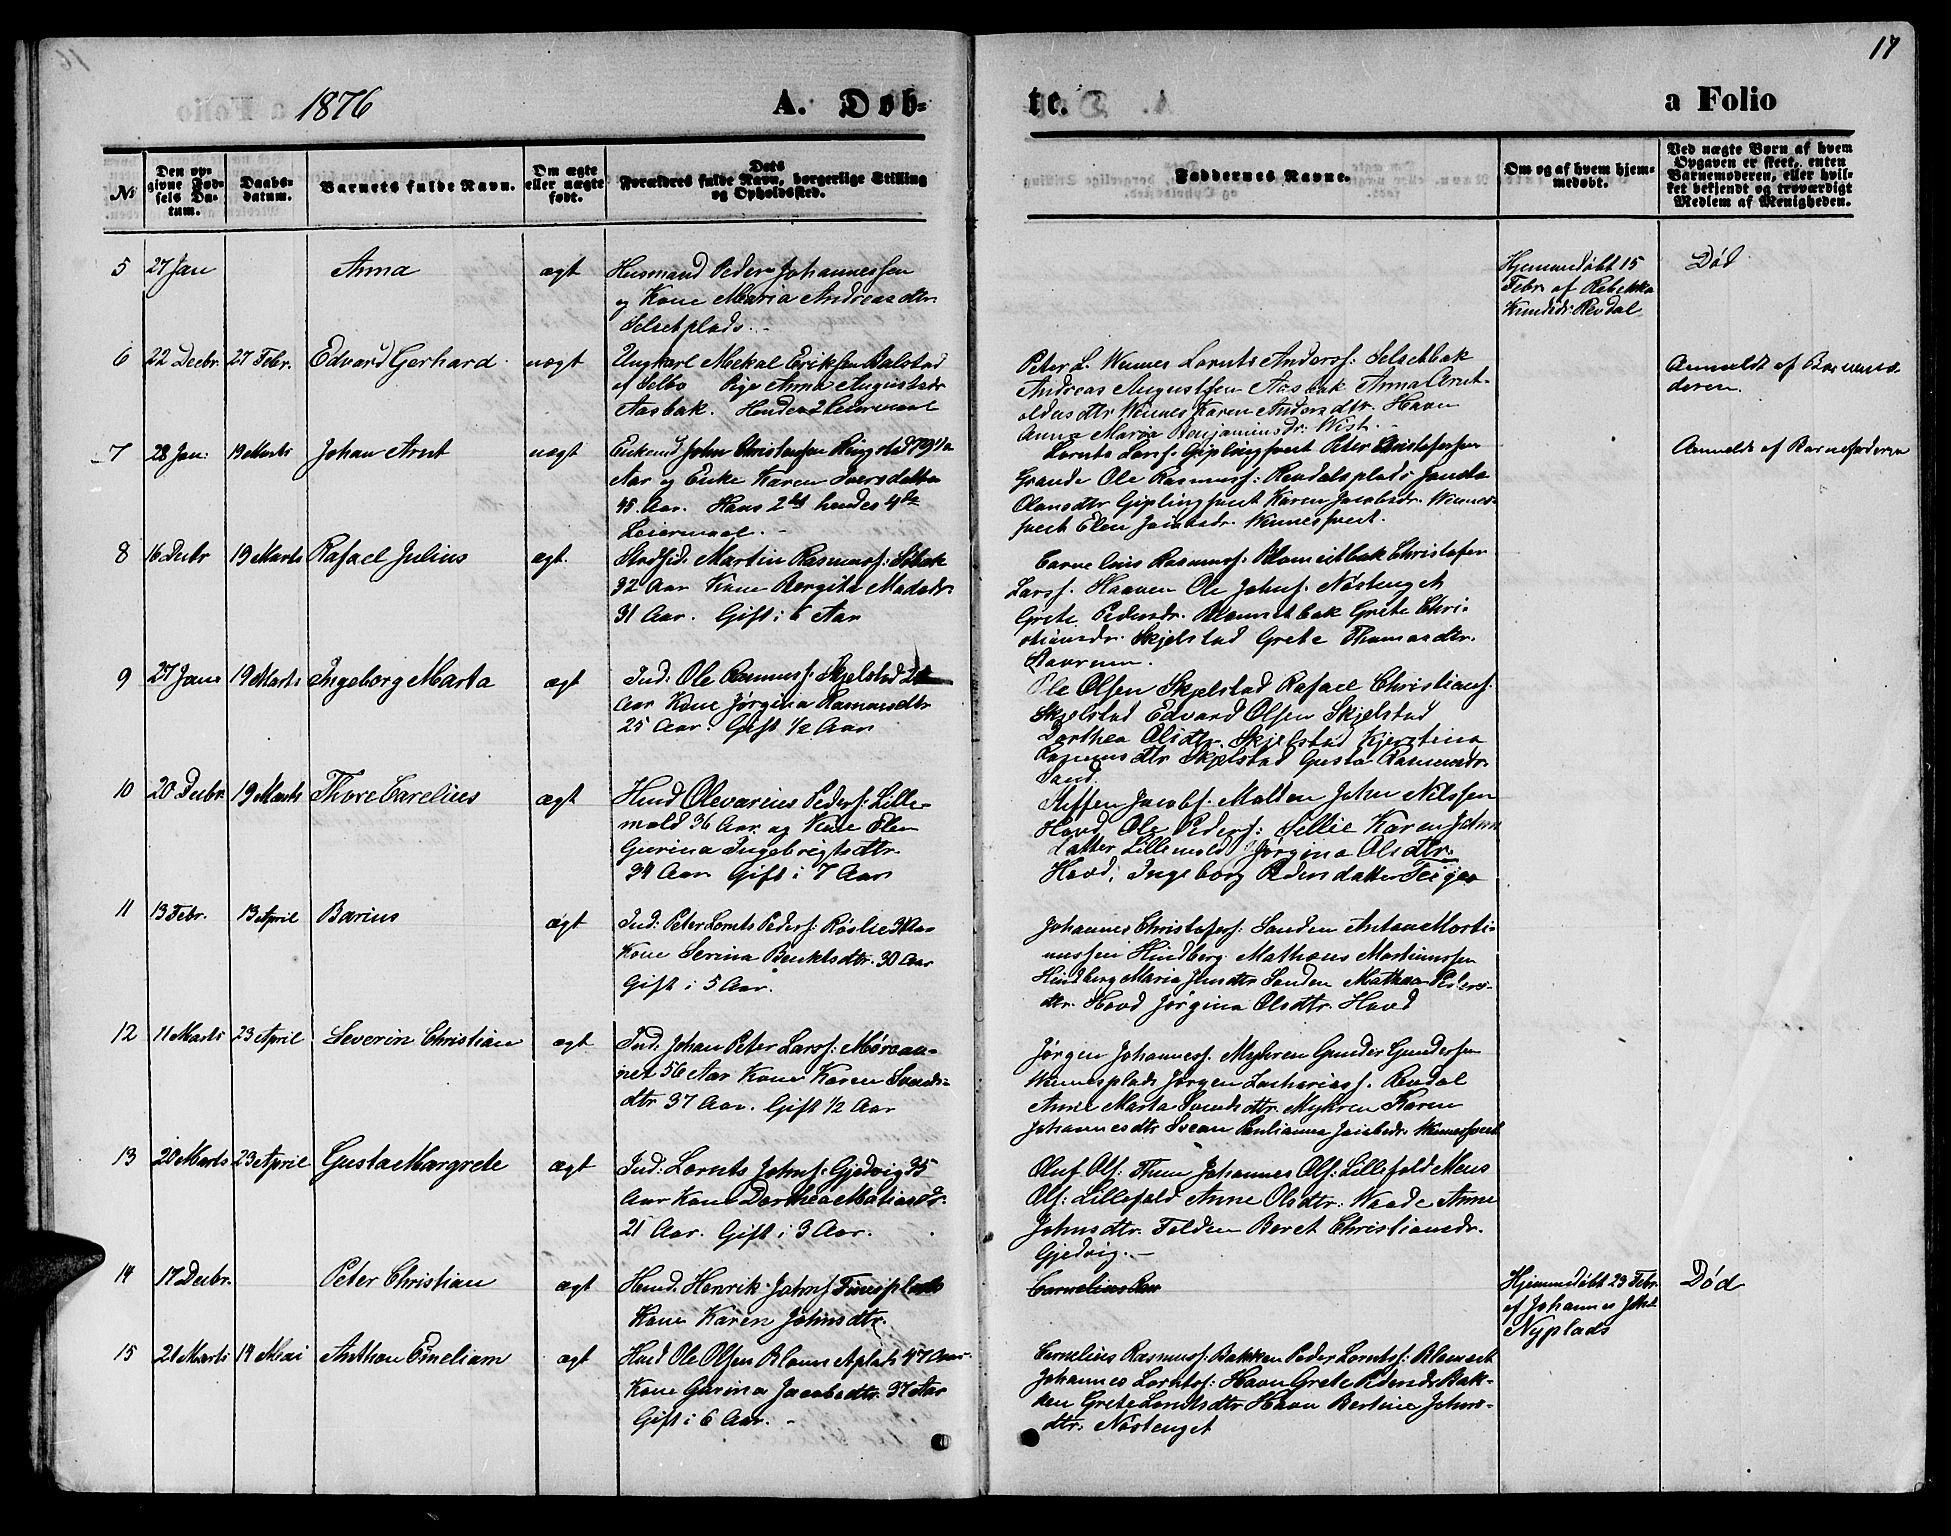 17
1876
A. Døb-
te.
a Folio
No
Den op-
givne Fød-
sels Da-
tum.
Daabs-
datum.
Barnets fulde Navn.
Om ægte
eller uægte
født.
Dets
Forældres fulde Navn, borgerlige Stilling
og Opholdssted.
Faddernes Navne.
Om og af hvem hjem-
medøbt.
Ved uægte Børn af hvem
Opgaven er skeet, enten
Barnemoderen, eller hvil-
ket bekjendt og troværdigt
Medlem af Menigheden.
5 27 Jan Anna ægt Husmand Peder Johannessen
og Kone Maria Andreasdtr.
Selsetplads.
Hjemmedøbt 15
Febr. af Rebekka
Revdal
Død
6 22 Decbr. 27 Febr. Edvard Gerhard uægt Ungkarl Mekal Eriksen Balstad
af Selbo Pige Anna Augustsdr
Aasbak. Hendes 2 Leiermaal
Peter L. Wennes Lornts Andersf: Selsetbak
Andreas Augustsen Aasbak Anna Arnt-
oldusdtr Wennes Karen Andersdtr. Havn
Anna Maria Benjaminsdr. Vist.
Anmeldt af Barnemo-
deren.
7 28 Jan. 19 Marts Johan Arnt uægt Enkemd John Christensen Ringstad 79 1/2
Aar og Enke Karen Iversdatter
45 Aar. Hans 2det hendes 4de
Leiermaal.
Lornts Larsf: Giplingsvet Peter Christofersen
Grande Ole Rasmusf: Revdalsplads
Olausdtr Giplingsvet Karen Jacobsdr. Wennes-
svet Elen Jacobsdr. Wennessvet.
Anmeldt af Barnefaderen
8 16 Decbr 19 Marts Rafael Julius ægt. Martin Rasmusf:
32 Aar Kone Bergitte
31 Aar. Gift i 6 Aar
Cornelius Rasmusf: Christofer
Larsf. Haaven Ole Johnsf. Nøstenget
Grete Pedersdr. Grete Chri-
stiansdr. Skjelstad Grete Thomasdtr.
9 27 Jan 19 Marts Ingeborg Marta ægt Ind: Ole Rasmusf: Skjelstad
Aar Kone Jørgina Rasmusdtr
25 Aar. Gift 1/2 Aar
Ole Olsen Skjelstad Rafael Christiansf.
Skjelstad Edvard Olsen Skjelstad
Dorthea Olsdtr. Skjelstad Kjerstina
Rasmusdtr Skjelstad Gusta Rasmusdr.
Sand.
10 20 Decbr 19 Marts Thore Carelius ægt Husmd Olevareius Pedersf: Lille-
mold 36 Aar og Kone Elen
Gurina Ingebrigtsdtr.
34 Aar Gift i 7 Aar
Steffen Jacobsf. Molten John Nilssen
Hovd Ole Pedersf: Sellie Karen
datter Lillemold Jørgina Olsdtr.
Hovd, Ingeborg Pedersdatter
11 13 Febr. 13 April Barius ægt Ind: Peter Lornts Pedersf: Røslie
Kone Serina Benktsdtr. 30 Aar
Gift i 5 Aar.
Johannes Christofersf: Sanden Anton Marti-
nussen Hindberg Mathæus Martinussen
Hindberg Maria Jensdtr Sanden Mathea Peders-
dtr. Hovd Jørgina Olsdtr. Hovd
12 11 Marts 23 April Severin Christian ægt Ind: Johan Peter Larsf:
56 Aar Kone Karen Svends-
dtr 37 Aar. Gift 1/2 Aar
Jørgen Johannesf. Myhren Gunder Gundersen
Wennesplads Jørgen Zachariasf. Revdal
Anne Marta Svendsdtr. Myhren Karen
Johannesdtr Svean Paulianna Jacobsdr. Wennessvet
13 20 Marts 23 April Gusta Margrete ægt Ind: Lornts Johnsf: Gjedvig 35
Aar Kone Dorthea
21 Aar. Gift i 3 Aar.
Oluf Olsf: Thun Johannes Olsf: Lillefald
Olsf: Lillefald Anne Olsdtr: Waade Anne
Johnsdtr. Folden Beret Christiansdr.
Gjedvig.
14 17 Decbr. Peter Christian ægt Husmd. Henrik Johnsf
Kone Karen Johnsdtr.
Cornelius
Hjemmedøbt 23 Febr.
af Johannes
Nyplads
Død
15 21 Marts 14 Mai Anthon ægt Husd Ole Olsen 47 Aar
Kone Gurina Jacobsdtr. 37 Aar
Gift i 6 Aar.
Cornelius Rasmusf: Bakken Peder Lorntsf:
Johannes Lorntsf: Havn Grete Pedersdr. Bak-
ken Grete Lorntsdtr Havn Bertine Johns-
dtr. Nøstenget